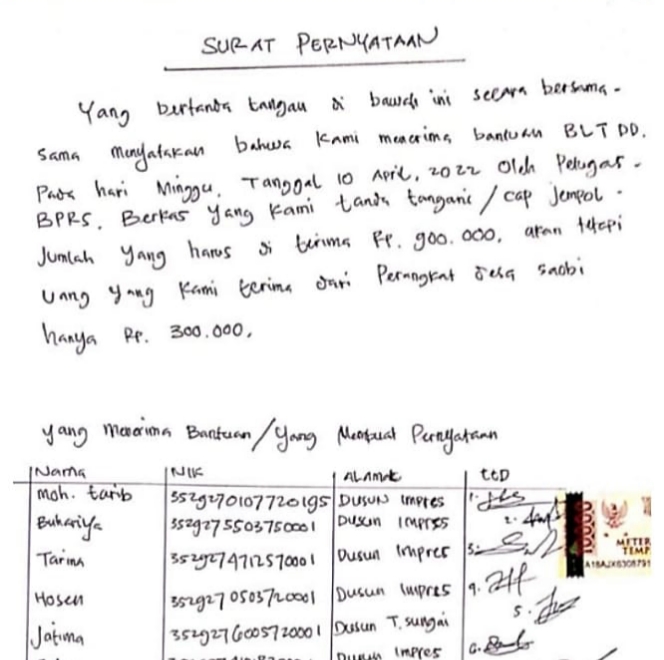 SURAT PERNYATAAN
Yang bertanda tangan di bawah ini secara bersama-
sama menyatakan bahwa Kami menerima bantuan BLT DD.
Pada hari Minggu, Tanggal 10 April, 2022 Oleh Petugas -
BPRS. Berkas yang Kami tanda tangani / cap jempol -
Jumlah yang harus di terima Rp. 900.000, akan tetapi
uang yang Kami terima dari Perangkat desa saobi
hanya Rp. 300.000,
yang Menerima Bantuan / Yang Membuat Pernyataan
Nama NIK ALAMAt ttD
Moh. tarib 3529270107720195 DUSUN Impres 1.
Buhariya 3529275503750001 Dusun Impres 2.
Tarima 3529274712570001 Dusun Impres 3.
METER
TEMP
Hosen 3529270503720001 Dusun Impres 4.
5.
Jatima 3529276005720001 Dusun T. sungai
Dusun Impres 6.